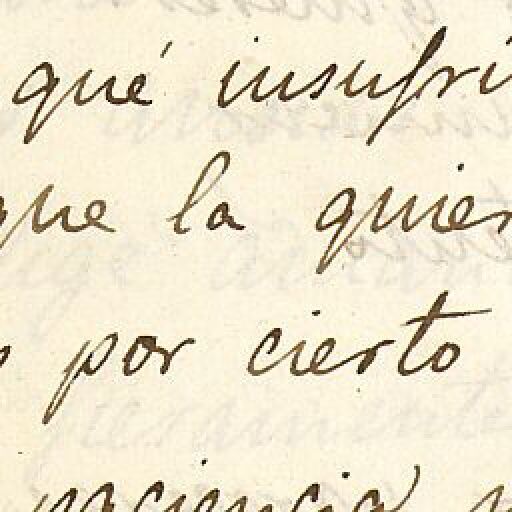 qué insufri
que la quier
por cierto
paciencia